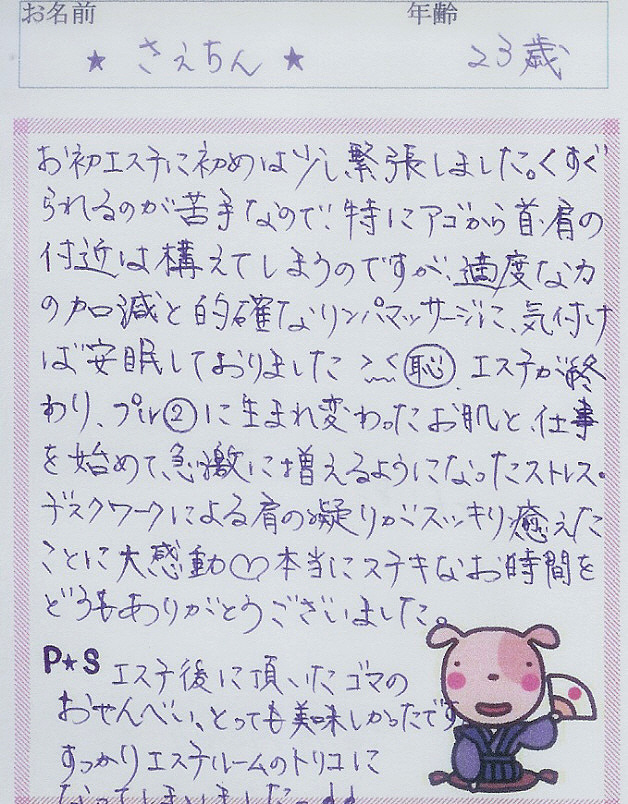 お名前 年齢
★ さえちん ★ 23歳
お初エステに初めは少し緊張しました。くすぐ
られるのが苦手なので、特にアゴから首・肩の
付近は構えてしまうのですが、適度な力
の加減と的確なリンパマッサージに、気付け
ば安眠しておりました >< 恥 エステが終
わり、プル②に生まれ変わったお肌と、仕事
を始めて、急激に増えるようになったストレス・
デスクワークによる肩の凝りがスッキリ癒えた
ことに大感動♡本当にステキなお時間を
どうもありがとうございました。
P★S エステ後に頂いたゴマの
おせんべい、とっても美味しかったです
すっかりエステルームのトリコに
なってしまいました